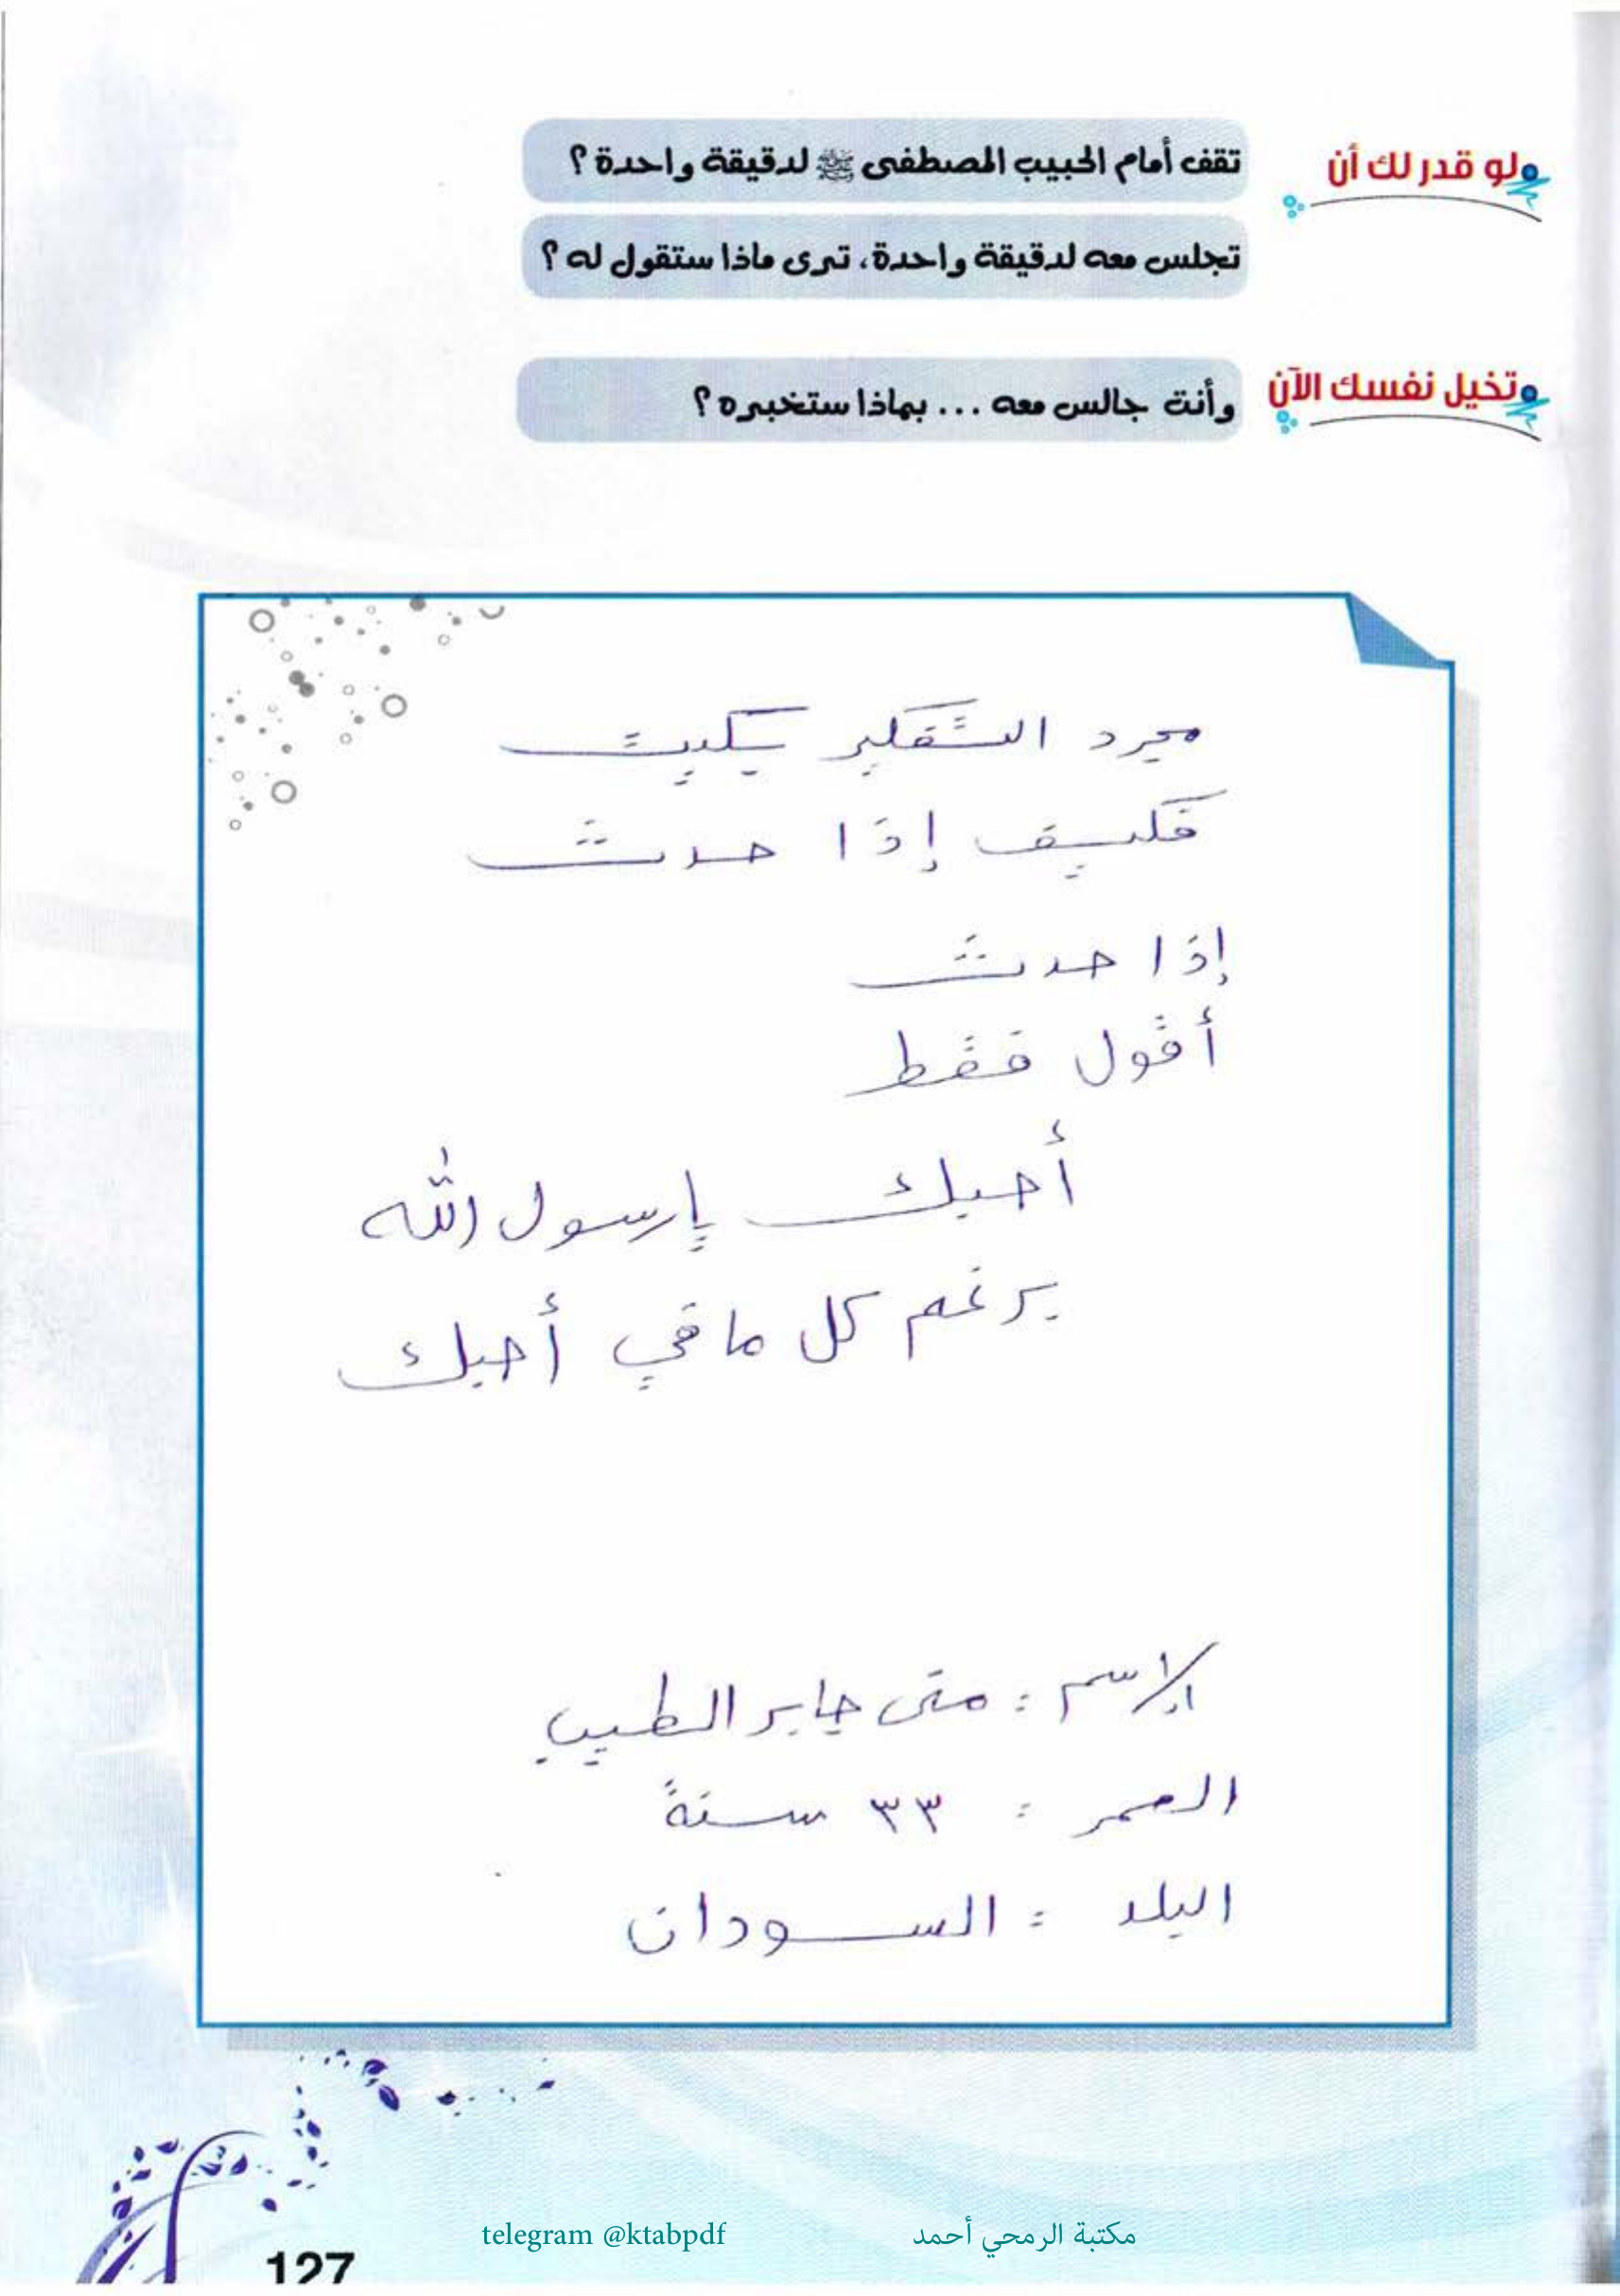 لو قدر لك أن
تقف أمام الحبيب المصطفى ﷺ لدقيقة واحدة ؟
تجلس معه لدقيقة واحدة، ترى ماذا ستقول له ؟
تخيل نفسك الآن
وأنت جالس معه ... بماذا ستخبره ؟
مجرد التفكير يبكيني
فكيف إذا حدث
إذا حدث
أقول فقط
أحبك يا رسول الله
برغم كل ما في أحبك
الإسم : منى جابر الطيب
العمر : ٣٣ سنة
البلد : السودان
127
telegram @ktabpdf
مكتبة الرمحي أحمد